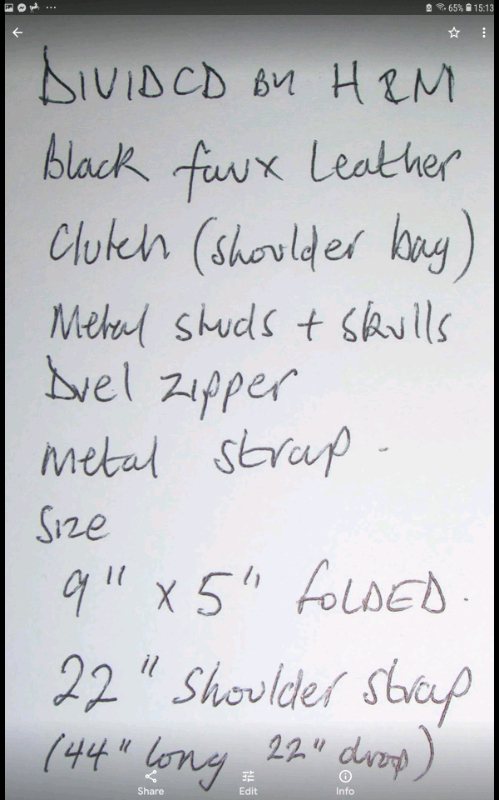 65% 15:13
DIVIDED BY H&M
Black faux Leather
Clutch (shoulder bag)
Metal studs + skulls
Duel zipper
Metal strap.
Size
9" x 5" FOLDED.
22" Shoulder strap
(44" long 22" drop)
Share Edit Info